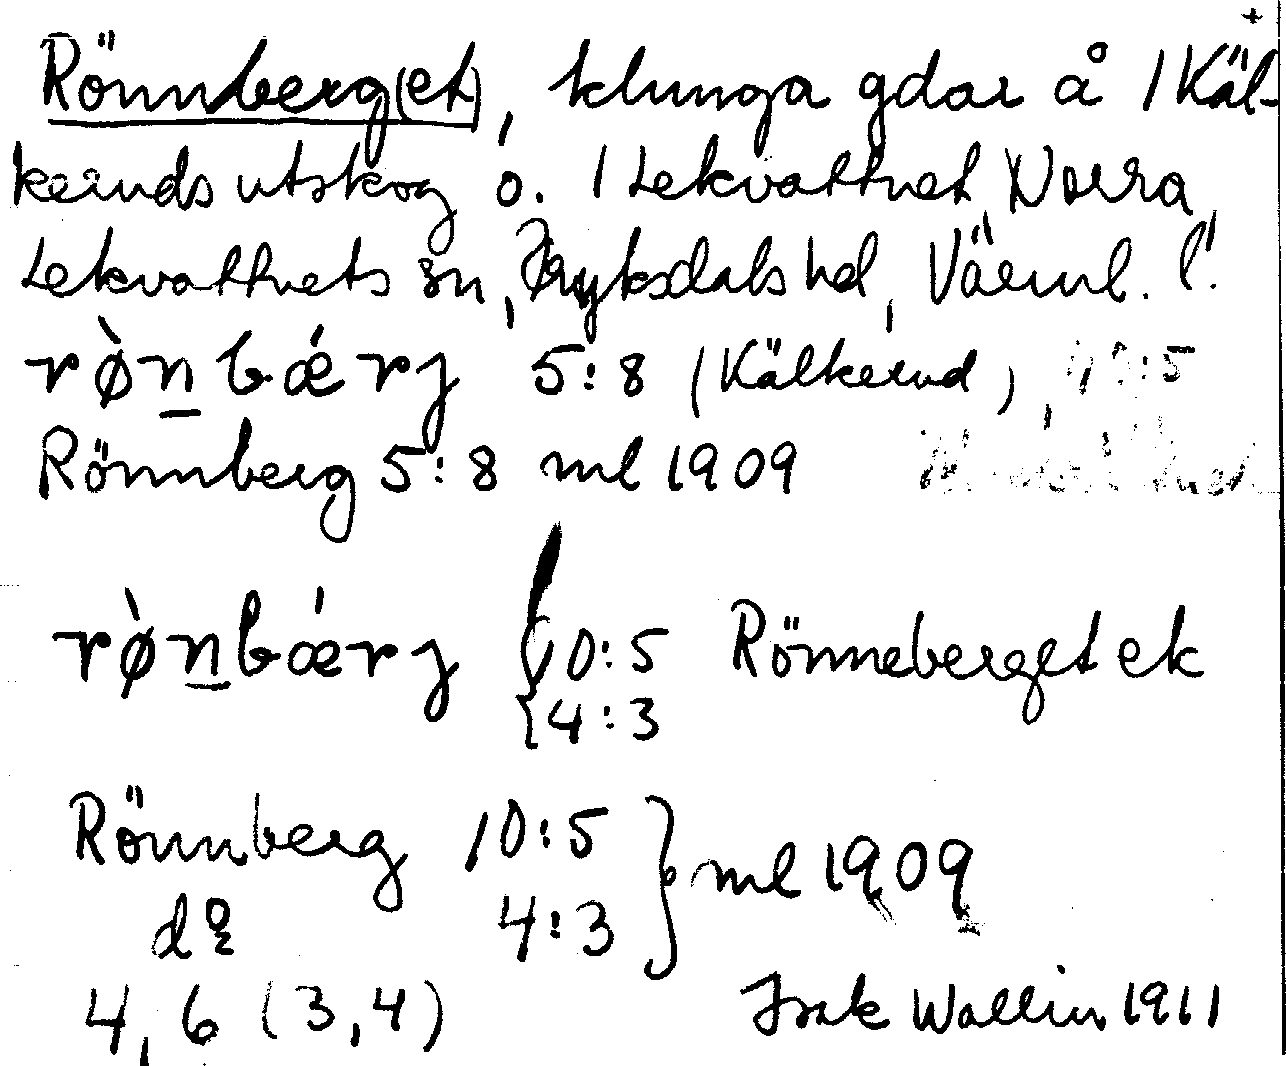 +
Rönnberg(et), klunga gdar å 1 Käl-
keruds utskog o. 1 Lekvattnet, Norra
Lekvattnets sn, Fryksdals hd, Värml. l.
rø̀n̲bǽrj 5:8 (Kälkerud),
Rönnberg 5:8 ml 1909
rø̀n̲bǽrj { 10:5 Rönneberget ek
{ 4:3
Rönnberg 10:5 } ml 1909
do 4:3
4, 6 (3,4) Isak Wallin 1911